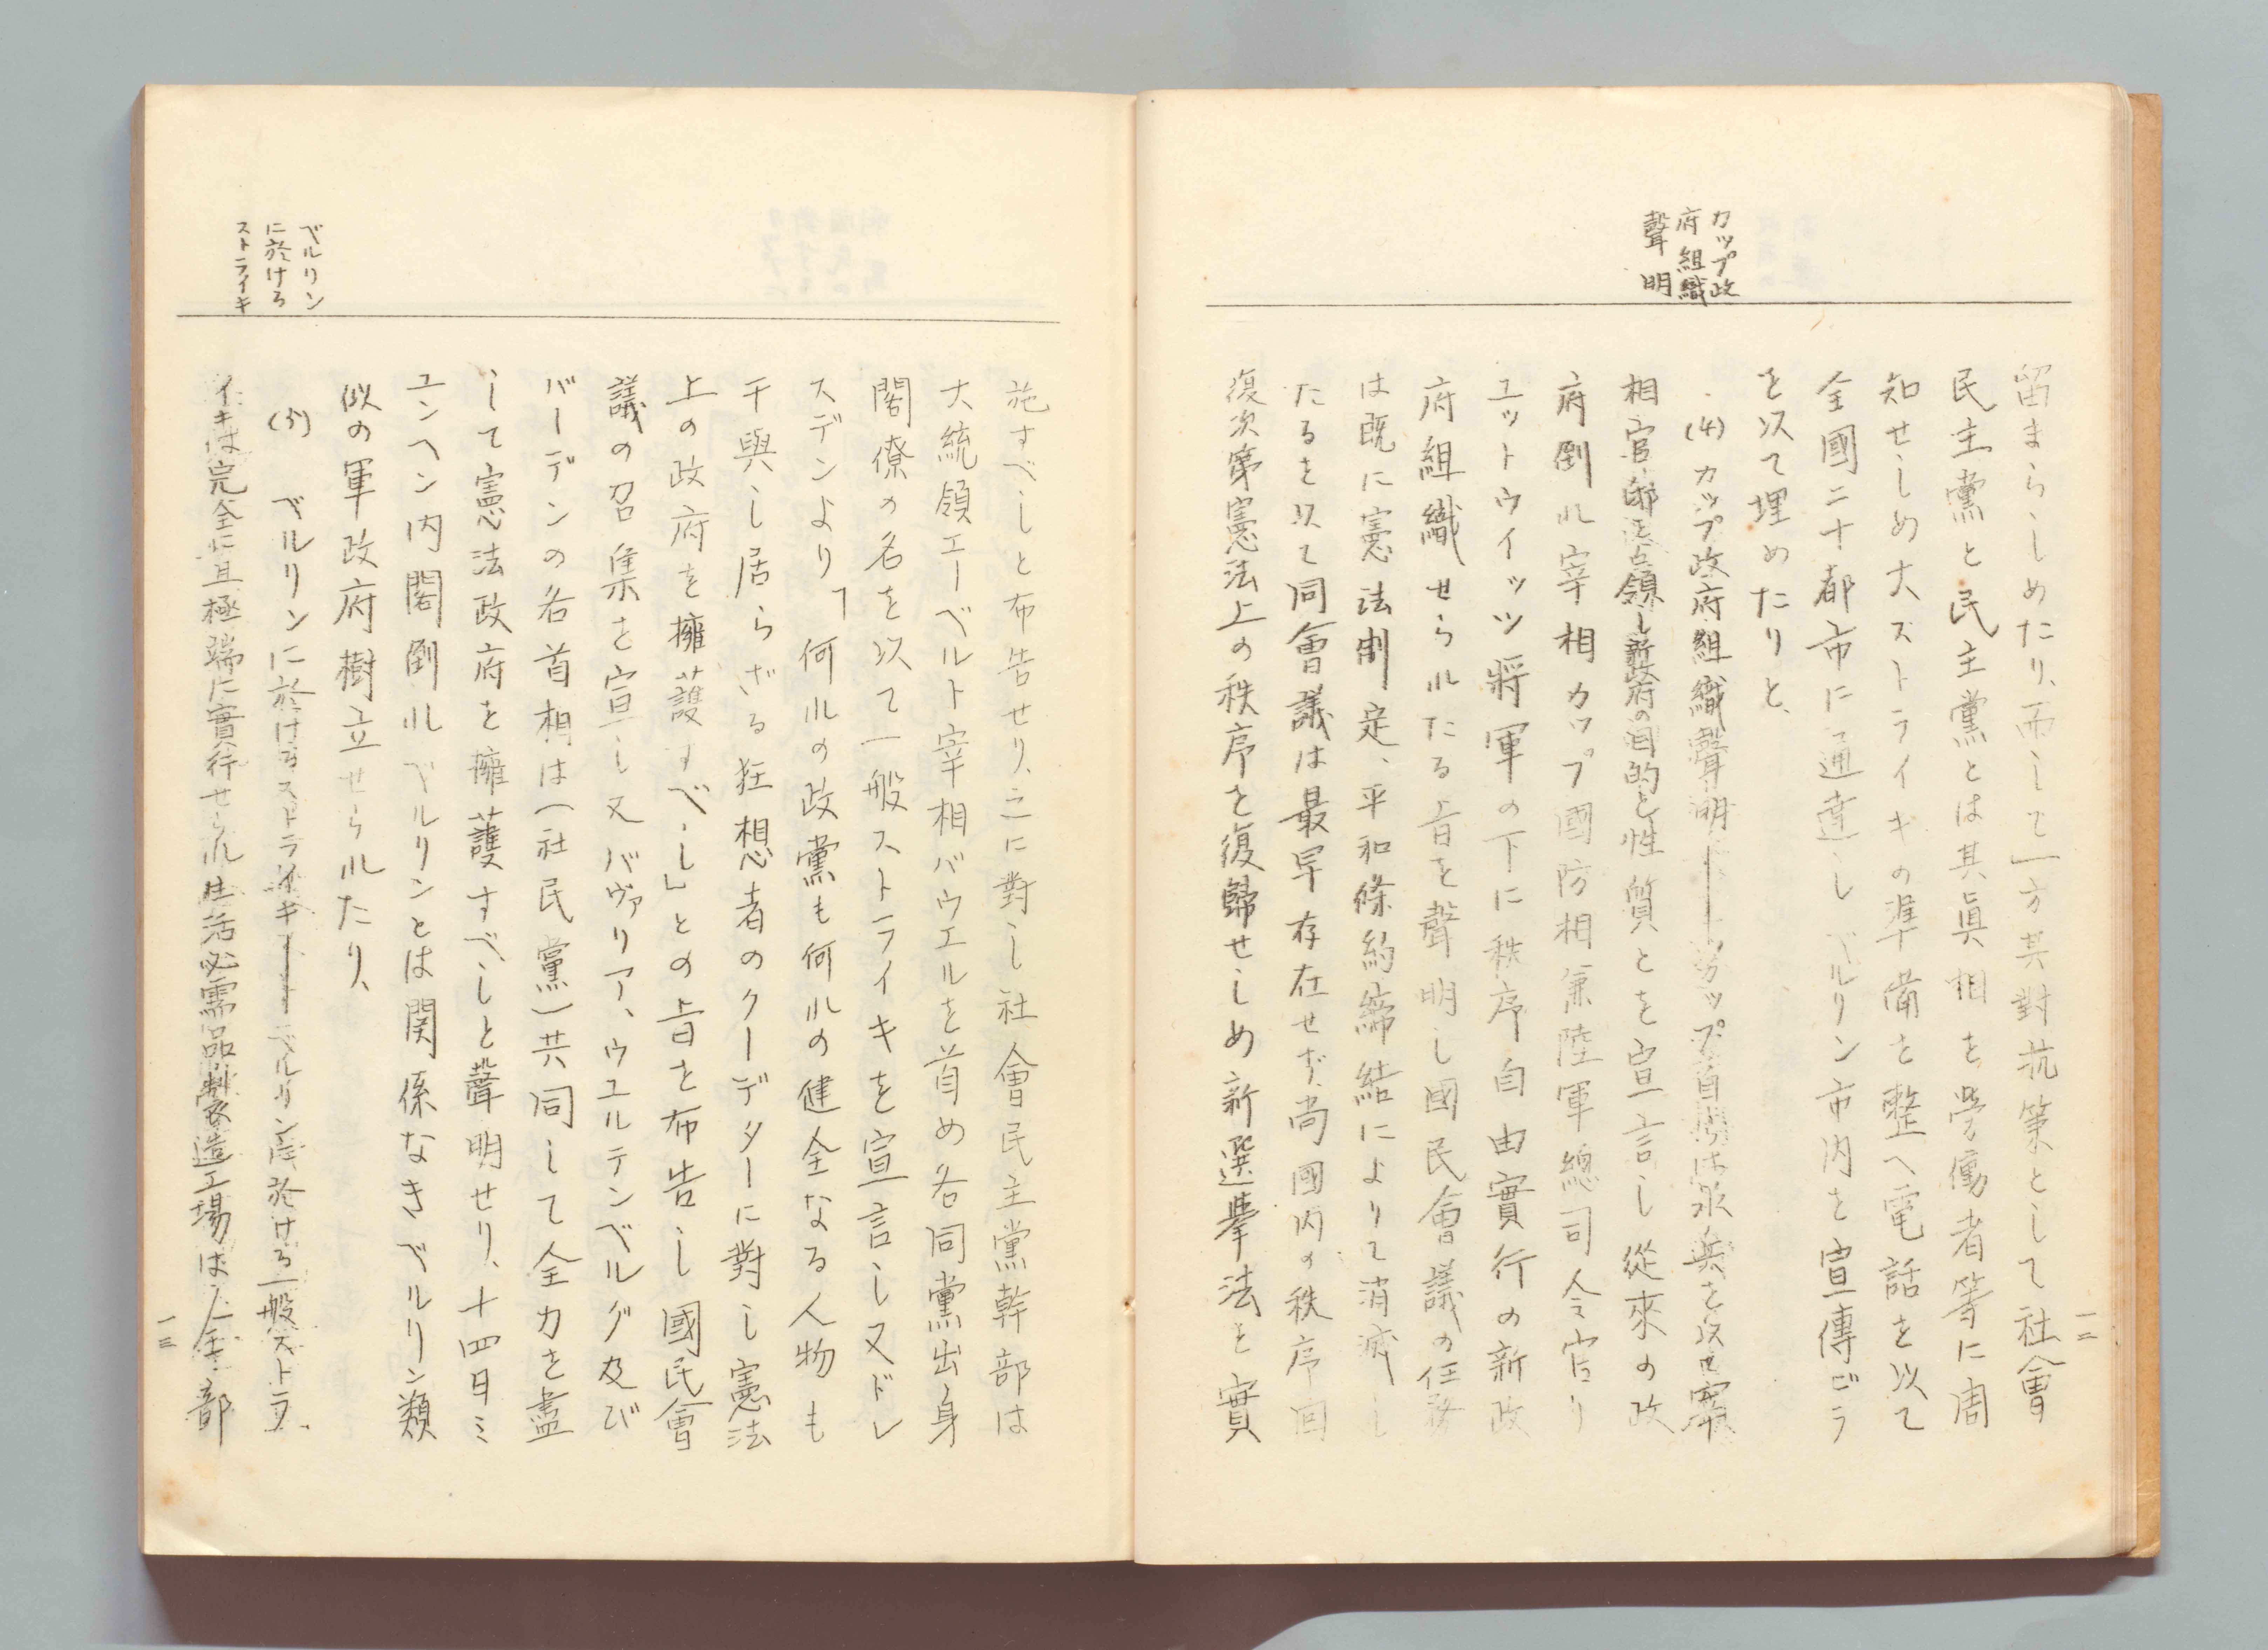 カップ政
府組織
聲明
留まらしめたり、而して一方其對抗策として社會
民主黨と民主黨とは其眞相を勞働者等に周
知せしめ大ストライキの準備を整へ電話を以て
全國二十都市に通達しベルリン市内を宣傳ビラ
を以て埋めたりと、
(4) カップ政府組織聲明――カップ首相は水兵を以て宰
相官邸を占領し新政府の目的と性質とを宣言し從來の政
府倒れ宰相カップ國防相兼陸軍總司令官リ
ユットウイッツ將軍の下に秩序自由實行の新政
府組織せられたる旨を聲明し國民會議の任務
は既に憲法制定、平和條約締結によりて消滅し
たるを以て同會議は最早存在せず、尚國内の秩序回
復次第憲法上の秩序を復歸せしめ新選擧法を實
一二
ベルリン
に於ける
ストライキ
施すべしと布告せり、之に對し社會民主黨幹部は
大統領エーベルト宰相バウエルを首め各同黨出身
閣僚の名を以て一般ストライキを宣言し又ドレ
スデンより「何れの政黨も何れの健全なる人物も
干與し居らざる狂想者のクーデターに對し憲法
上の政府を擁護すべし」との旨を布告し國民會
議の召集を宣し又バヴァリア、ウユルテンベルグ及び
バーデンの各首相は(社民黨)共同して全力を盡
して憲法政府を擁護すべしと聲明せり、十四日ミ
ユンヘン内閣倒れベルリンとは関係なきベルリン類
似の軍政府樹立せられたり、
(5) ベルリンに於けるストライキ――ベルリンに於ける一般ストラ
イキは完全に且極端に實行せられ生活必需品製造工場は全部
一三